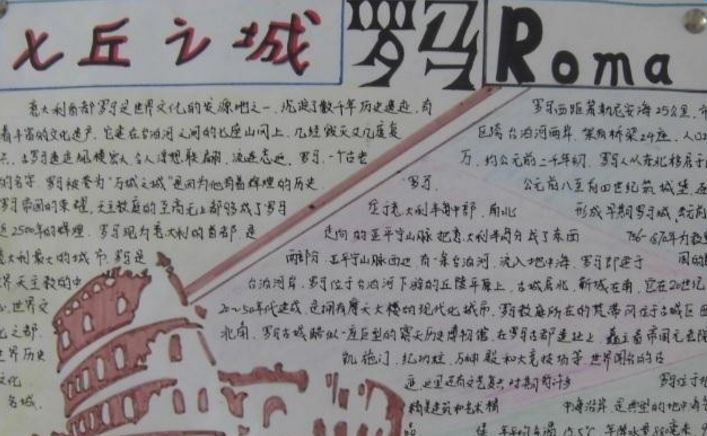 七丘之城 罗马 Roma
意大利首都罗马是世界文化的发源地之一,
着丰富的文化遗产,它建在台伯河之间的七座山冈上,几经毁灭又几度复
罗马,一个古老
的名字,罗马被誉为"万城之城"是因为他有着辉煌的历史,
罗马帝国的荣耀,天主教廷的至高无上都够成了罗马
近2500年的辉煌。罗马现为意大利的首都,是
意大利最大的城市,罗马是
界天主教的中
心,世界文
化之都,
世界历史
文化
名城,
罗马
位于意大利半岛中部,南北
走向的亚平宁山脉把意大利半岛分成了东西
两部分,亚平宁山脉西边,有一条台伯河,流入地中海,罗马即建于
台伯河岸,罗马位于台伯河下游的丘陵平原上,古城居北,新城在南,它在20世纪
20~50年代建成,是拥有摩天大楼的现代化城市,罗马教廷所在的梵蒂冈位于古城区西
北角,罗马古城酷似一座巨型的露天历史博物馆,在罗马古都遗址上,矗立着帝国元老院
凯旋门,纪功柱,万神殿和大竞技场等世界闻名的古
迹,这里还有文艺复兴时期的许多
精美建筑和艺术精
品
罗马西距第勒尼安海25公里,市
区跨台伯河两岸,架有桥梁24座,人口2
万,约公元前二千年初,罗马人从东北移居于
公元前八至前四世纪筑城堡,逐
形成早期罗马城,公元前
罗马位于地
中海沿岸,是典型的地中海气
年平均气温15.5℃,年降水量880毫米,